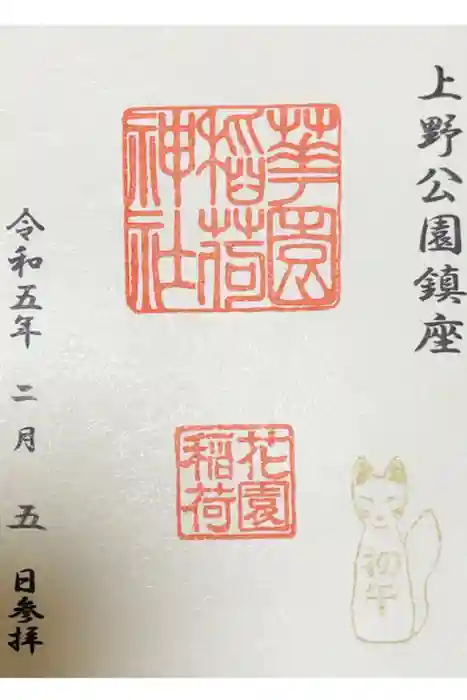 上野公園鎮座
華園
稲荷
神社
花園
稲荷
初午
令和五年 二月 五 日参拝